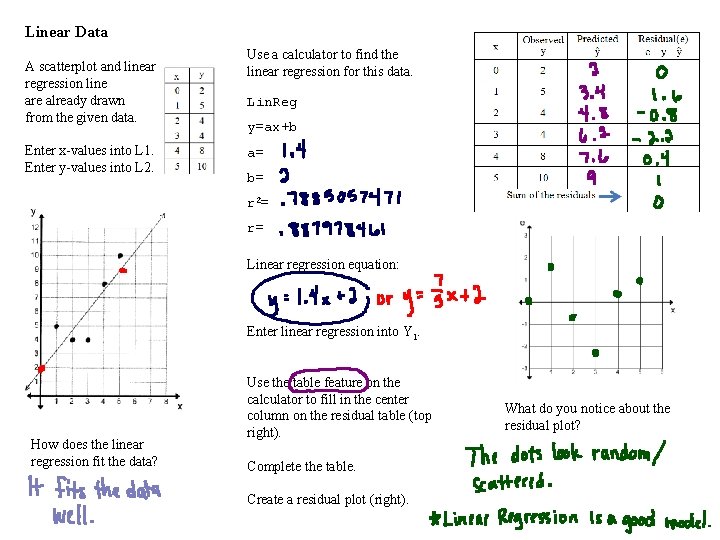 Linear Data
A scatterplot and linear
regression line
are already drawn
from the given data.
Enter x-values into L1.
Enter y-values into L2.
x y
0 2
1 5
2 4
3 4
4 8
5 10
y
12
11
10
9
8
7
6
5
4
3
2
1
0 1 2 3 4 5 6 7 8 x
How does the linear
regression fit the data?
It fits the data
well.
Use a calculator to find the
linear regression for this data.
LinReg
y=ax+b
a= 1.4
b= 2
r²= .7885057471
r= .887978461
Linear regression equation:
y = 1.4x + 2 or y = 7/5 x + 2
Enter linear regression into Y1.
Use the table feature on the
calculator to fill in the center
column on the residual table (top
right).
Complete the table.
Create a residual plot (right).
x Observed y Predicted ŷ Residual(e) e = y - ŷ
0 2 2 0
1 5 3.4 1.6
2 4 4.8 -0.8
3 4 6.2 -2.2
4 8 7.6 0.4
5 10 9 1
Sum of the residuals 0
e
3
2
1
0
x
What do you notice about the
residual plot?
The dots look random/
scattered.
*Linear Regression is a good model.